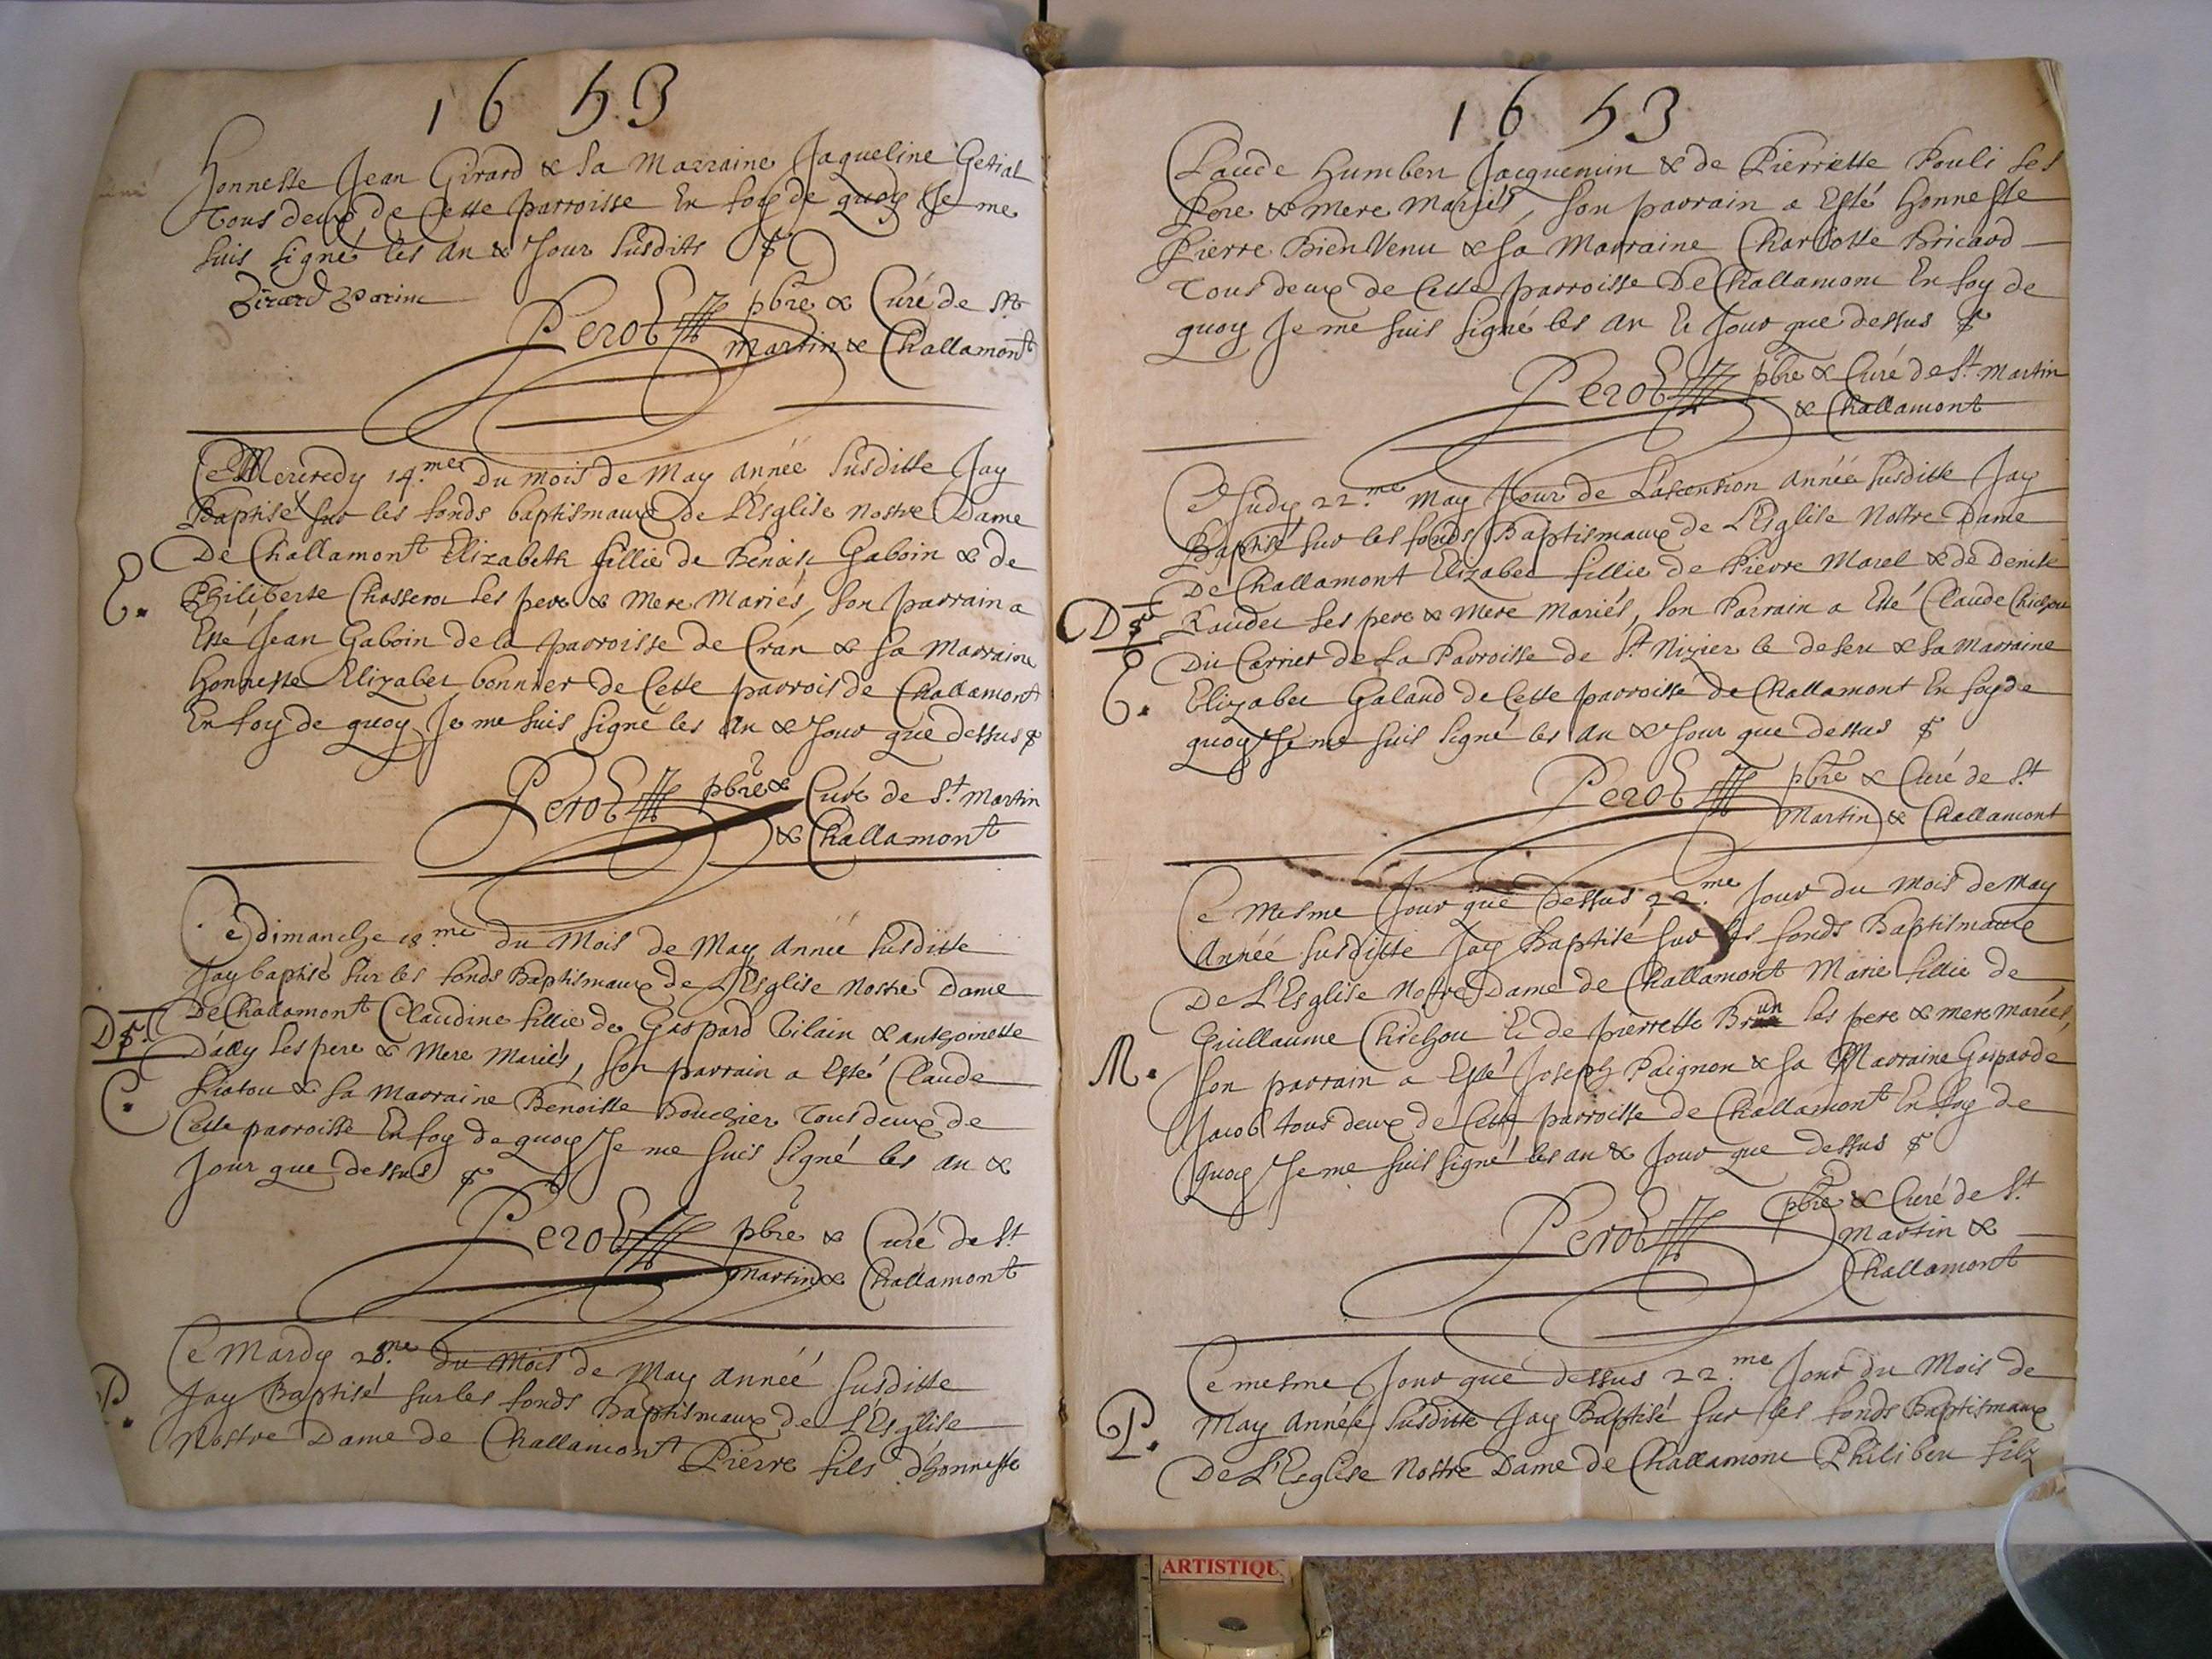 1653
honneste Jean Girard & sa Marraine Jaqueline Getial
Tous deux de Cette parroisse En foy de quoy Je me
suis signé les an & Jour susdits
Girard parin
Perot pbre & Curé de St
Martin & Challamont
Ce Mercredy 14.me Du mois de May année susditte Jay
Baptisé sur les fonds baptismaux de L'Esglise Nostre Dame
De Challamont Elizabeth fillie de Benoist Gaboin & de
E.
Philiberte Chasserot ses pere & Mere Mariés, son parrain a
Esté Jean Gaboin de la parroisse de Cran & sa Marraine
honneste Elizabet bonnier de Cette parrois de Challamont
En foy de quoy Je me suis signé les an & Jour que dessus
Perot pbre & Curé de St Martin
& Challamont
Ce dimanche 18.me du Mois de May année susditte
Jay baptisé sur les fonds Baptismaux de L'Esglise Nostre Dame
De Challamont Claudine fillie de Gaspard Vilain & anthoinette
D
D'ally ses pere & Mere Mariés, son parrain a Esté Claude
C.
& sa Marraine Benoitte Bouchier Tous deux de
Cette parroisse En foy de quoy Je me suis signé les an &
Jour que dessus
Perot pbre & Curé de St
Martin & Challamont
Ce Mardy 20.me du Mois de May année susditte
P.
Jay Baptisé sur les fonds Baptismaux de L'Esglise
Nostre Dame de Challamont Pierre fils d'honneste
1653
Claude humbert Jacquemin & de Pierrette Pouli ses
Pere & Mere Mariés, son parrain a Esté honneste
Pierre BienVenu & sa Marraine Charlotte Bricaud
Tous deux de Cette parroisse De Challamont En foy de
quoy Je me suis signé les an & Jour que dessus
Perot pbre & Curé de St Martin
& Challamont
Ce Judy 22.me May Jour de L'ascention année susditte Jay
Baptisé sur les fonds Baptismaux de L'Esglise Nostre Dame
De Challamont Elizabet fillie de Pierre Morel & de Denise
D
Raudet ses pere & Mere Mariés, son Parrain a Esté Claude Chichou
Du Carnier de La Parroisse de St Nizier le desert & sa Marraine
E.
Elizabet Galand de Cette parroisse de Challamont En foy de
quoy Je me suis signé les an & Jour que dessus
Perot pbre & Curé de St
Martin & Challamont
Ce Mesme Jour que Dessus 22.me Jour du Mois de May
Année susditte Jay Baptisé sur les fonds Baptismaux
De L'Esglise Nostre Dame de Challamont Marie fillie de
Guillaume Chichou & de pierrette Brun ses pere & mere mariés,
M.
son parrain a Esté Joseph Paignon & sa Marraine Gasparde
Jacob tous deux de Cette parroisse de Challamont En foy de
quoy Je me suis signé les an & Jour que dessus
Perot pbre & Curé de St
Martin &
Challamont
Ce mesme Jour que dessus 22.me Jour du Mois de
P.
May Année susditte Jay Baptisé sur les fonds Baptismaux
De L'Esglise Nostre Dame de Challamont Philibert filz
ARTISTIQU